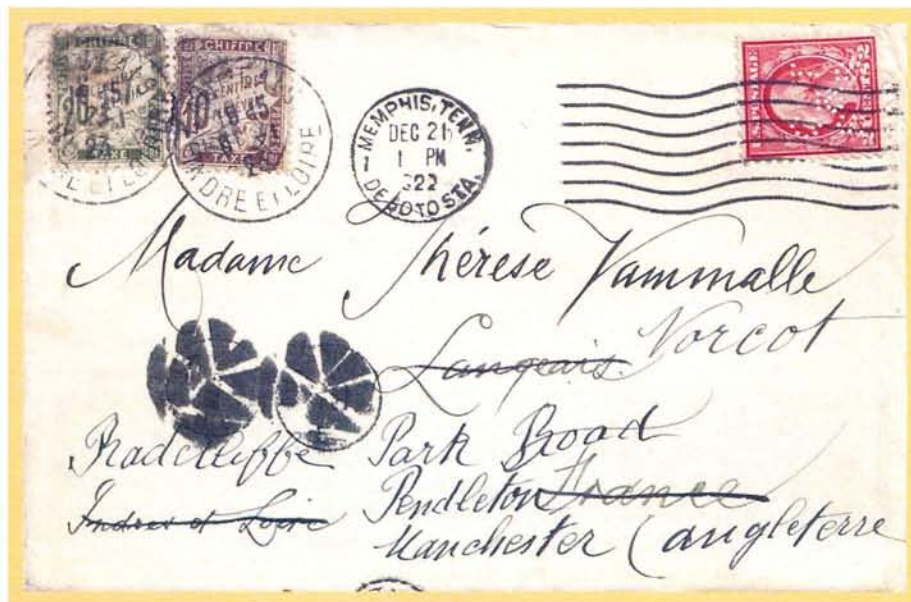 CHIFFRE
TAXE
CHIFFRE
10
TAXE
INDRE ET LOIRE
MEMPHIS, TENN.
DEC 21
1 PM
1922
DE SOTO STA.
Madame Thérese Vammalle
Langeais Norcot
Radcliffe Park Road
Pendleton France
Indres et Loire
Manchester (angleterre